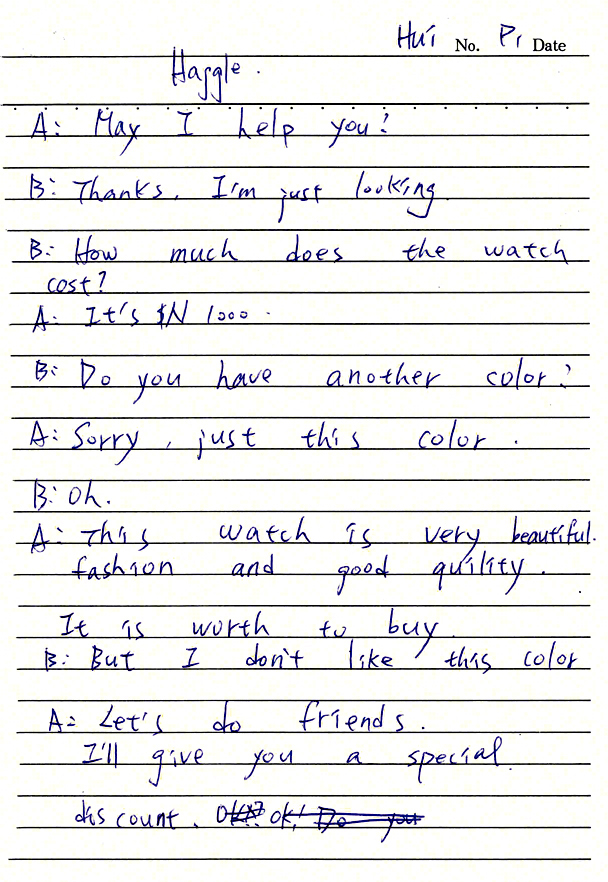 Hui No. Pi Date
Haggle.
A: May I help you?
B: Thanks, I'm just looking.
B: How much does the watch
cost?
A: It's $N 1000.
B: Do you have another color?
A: Sorry, just this color.
B: Oh.
A: This watch is very beautiful.
fashion and good quility.
It is worth to buy.
B: But I don't like this color
A: Let's do friends.
I'll give you a special
discount.